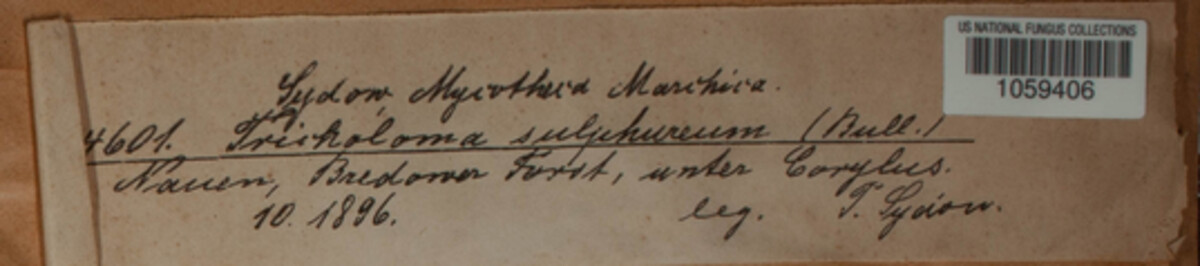 US NATIONAL FUNGUS COLLECTIONS
1059406
Sydow, Mycotheca Marchica.
4601. Tricholoma sulphureum (Bull.)
Nauen, Bredower Forst, unter Corylus.
10. 1896. leg. P. Sydow.